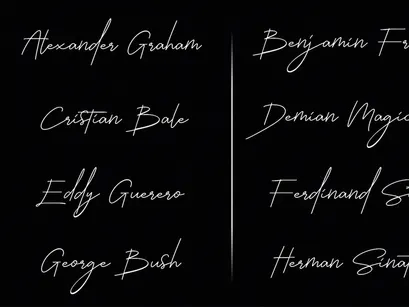 Alexander Graham
Cristian Bale
Eddy Guerero
George Bush
Benjamin Fr
Demian Magic
Ferdinand S
Herman Sinat